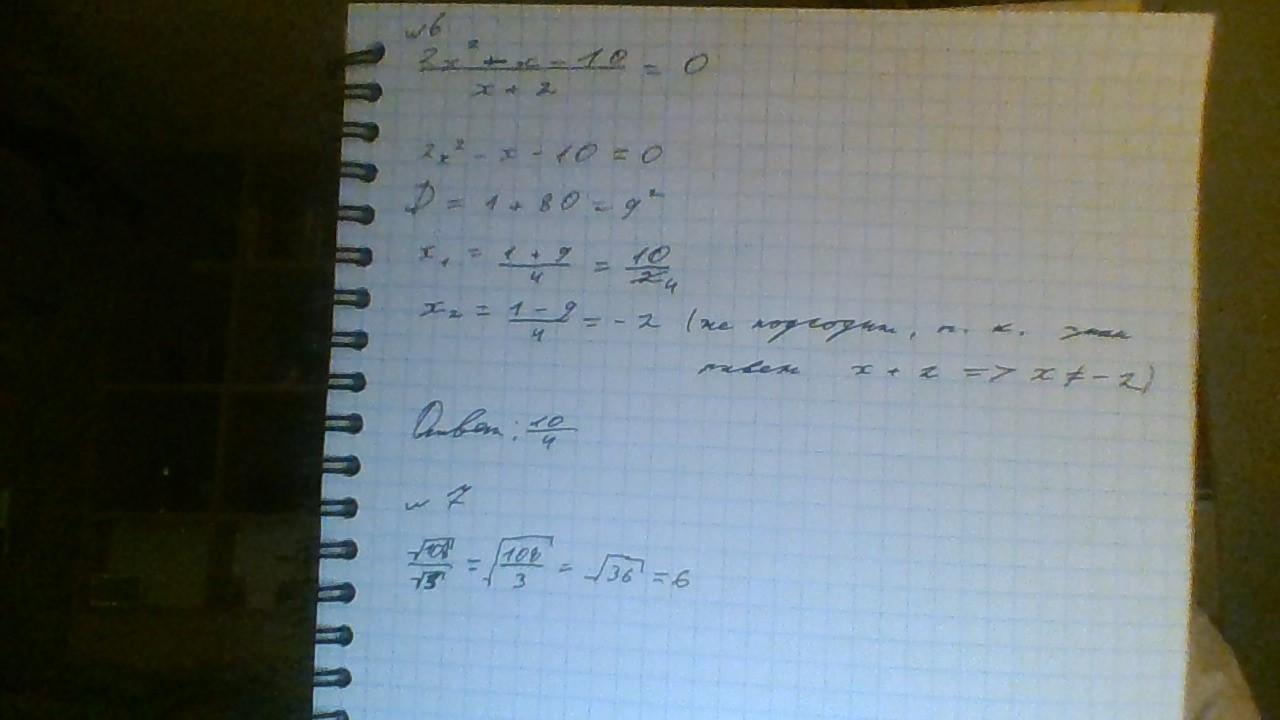 №6
2x² + x - 10 / x + 2 = 0
2x² - x - 10 = 0
D = 1 + 80 = 9²
x₁ = 1 + 9 / 4 = 10 / 4
x₂ = 1 - 9 / 4 = -2 (не подходит, т. к.
x + 2 => x ≠ -2)
Ответ: 10 / 4
№ 7
√108 / √3 = √108 / 3 = √36 = 6